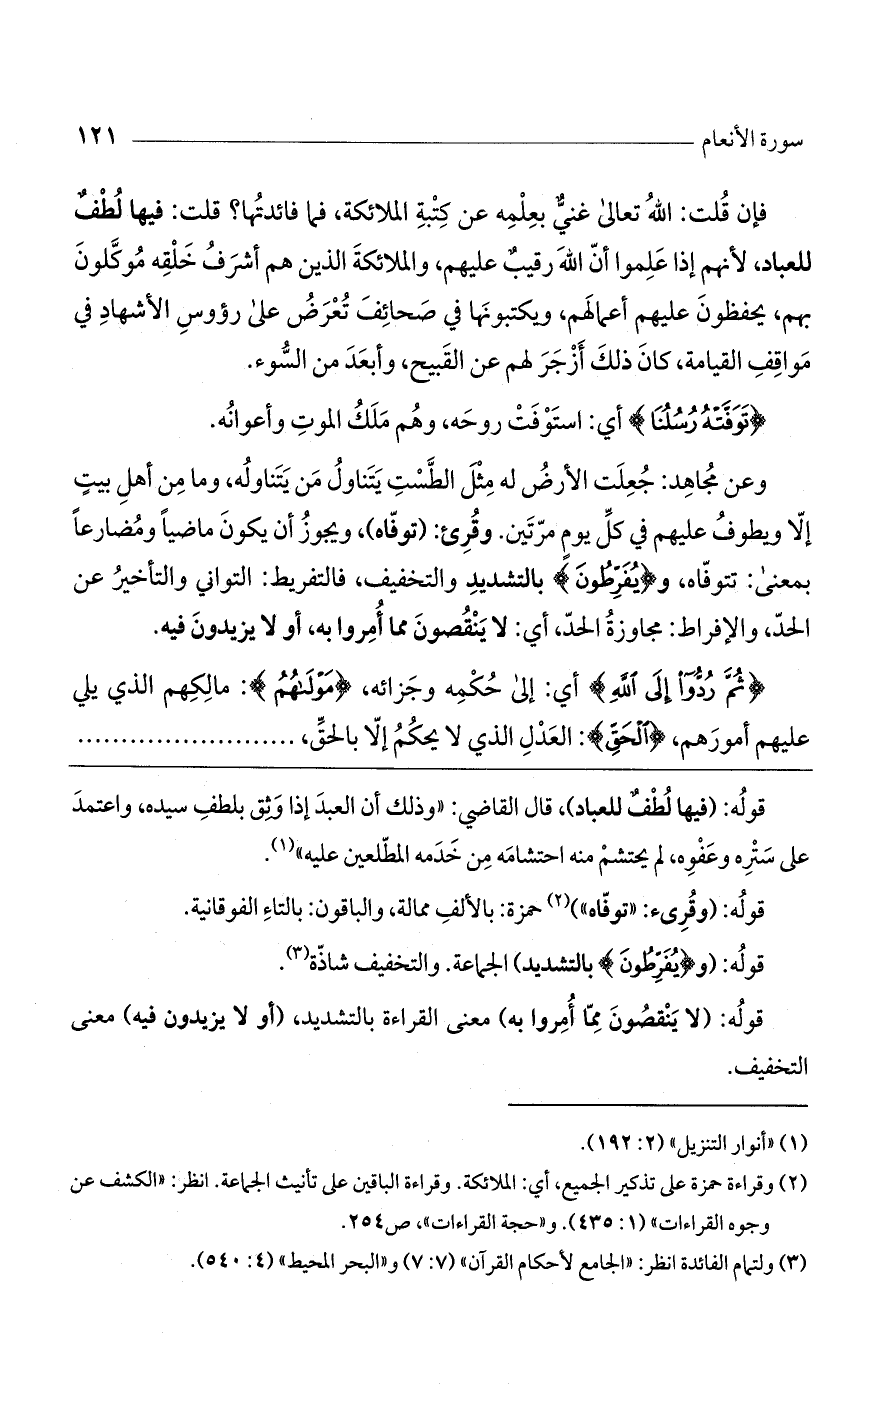 سورة الأنعام ١٢١
فإن قُلت: اللهُ تعالىٰ غنيٌّ بعِلْمِه عن كِتْبةِ الملائكة، فما فائدتُها؟ قلت: فيها لُطْفٌ
للعباد، لأنهم إذا عَلِموا أنّ اللهَ رقيبٌ عليهم، والملائكةَ الذين هم أشرَفُ خَلْقِه مُوكَّلونَ
بهم، يحفظونَ عليهم أعمالَهم، ويكتبونَها في صَحائِفَ تُعْرَضُ علىٰ رؤوسِ الأشهادِ في
مَواقِفِ القيامة، كانَ ذلكَ أَزْجَرَ لهم عن القَبيح، وأبعَدَ من السُّوء.
﴿تَوَفَّتْهُ رُسُلُنَا﴾ أي: استَوْفَتْ روحَه، وهُم مَلَكُ الموتِ وأعوانُه.
وعن مُجاهِد: جُعِلَت الأرضُ له مِثْلَ الطَّسْتِ يَتَناولُ مَن يَتَناولُه، وما مِن أهلِ بيتٍ
إلّا ويطوفُ عليهم في كلِّ يومٍ مرّتَين. وقُرِئ: (توفّاه)، ويجوزُ أن يكونَ ماضياً ومُضارعاً
بمعنىٰ: تتوفّاه، و﴿يُفَرِّطُونَ﴾ بالتشديدِ والتخفيف، فالتفريط: التواني والتأخيرُ عن
الحدّ، والإفراط: مجاوزةُ الحدّ، أي: لا يَنْقُصونَ مما أُمِروا به، أو لا يزيدونَ فيه.
﴿ثُمَّ رُدُّوٓا۟ إِلَى ٱللَّهِ﴾ أي: إلىٰ حُكْمِه وجَزائه، ﴿مَوْلَىٰهُمُ﴾: مالِكِهم الذي يلي
عليهم أمورَهم، ﴿ٱلْحَقِّ﴾: العَدْلِ الذي لا يحكُمُ إلّا بالحقِّ، .........................
قولُه: (فيها لُطْفٌ للعباد)، قال القاضي: «وذلك أن العبدَ إذا وَثِق بلطفِ سيده، واعتمدَ
على سَتْرِه وعَفْوِه، لم يحتشمْ منه احتشامَه مِن خَدَمه المطّلعين عليه»(١).
قولُه: (وقُرِىء: «توفّاه»)(٢) حمزة: بالألفِ ممالة، والباقون: بالتاءِ الفوقانية.
قولُه: (و﴿يُفَرِّطُونَ﴾ بالتشديد) الجماعة. والتخفيف شاذّة(٣).
قولُه: (لا يَنْقصُونَ مِمّا أُمِروا به) معنى القراءة بالتشديد، (أو لا يزيدون فيه) معنى
التخفيف.
(١) «أنوار التنزيل» (٢: ١٩٢).
(٢) وقراءة حمزة على تذكير الجميع، أي: الملائكة. وقراءة الباقين على تأنيث الجماعة. انظر: «الكشف عن
وجوه القراءات» (١: ٤٣٥). و«حجة القراءات»، ص٢٥٤.
(٣) ولتمام الفائدة انظر: «الجامع لأحكام القرآن» (٧: ٧) و«البحر المحيط» (٤: ٥٤٠).